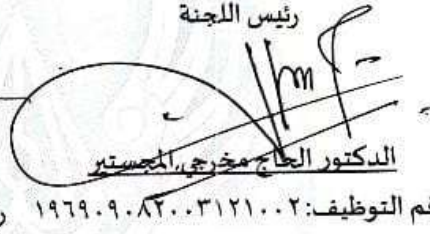 رئيس اللجنة
الدكتور الحاج مخرجي,الماجستير
قم التوظيف:١٩٦٩٠٩٠٨٢٠٠٣١٢١٠٠٢ ر